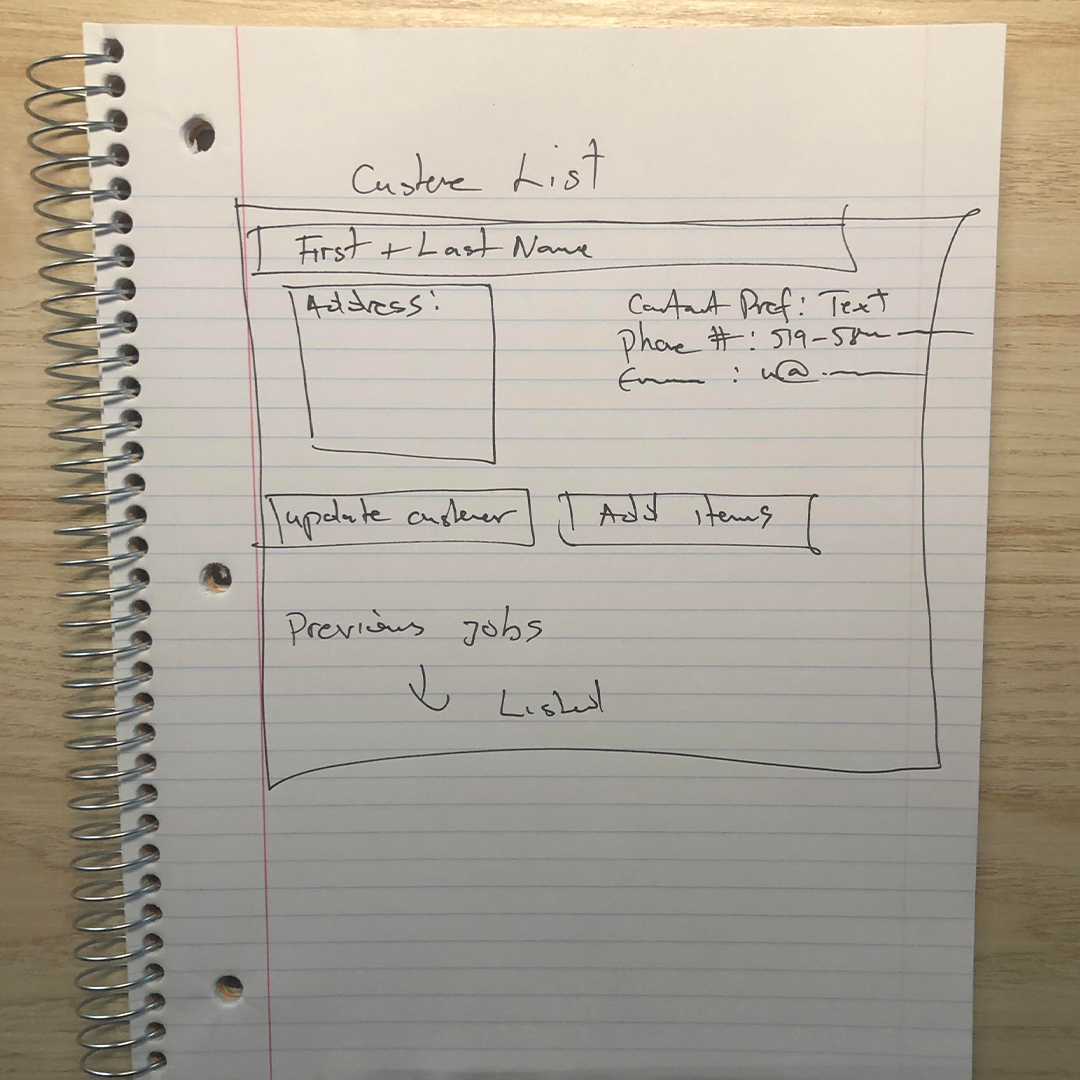 Custere List
First + Last Name
Address:
Contact Pref: Text
Phone #: 519-58
: @
update customer
Add items
Previous jobs
Listed